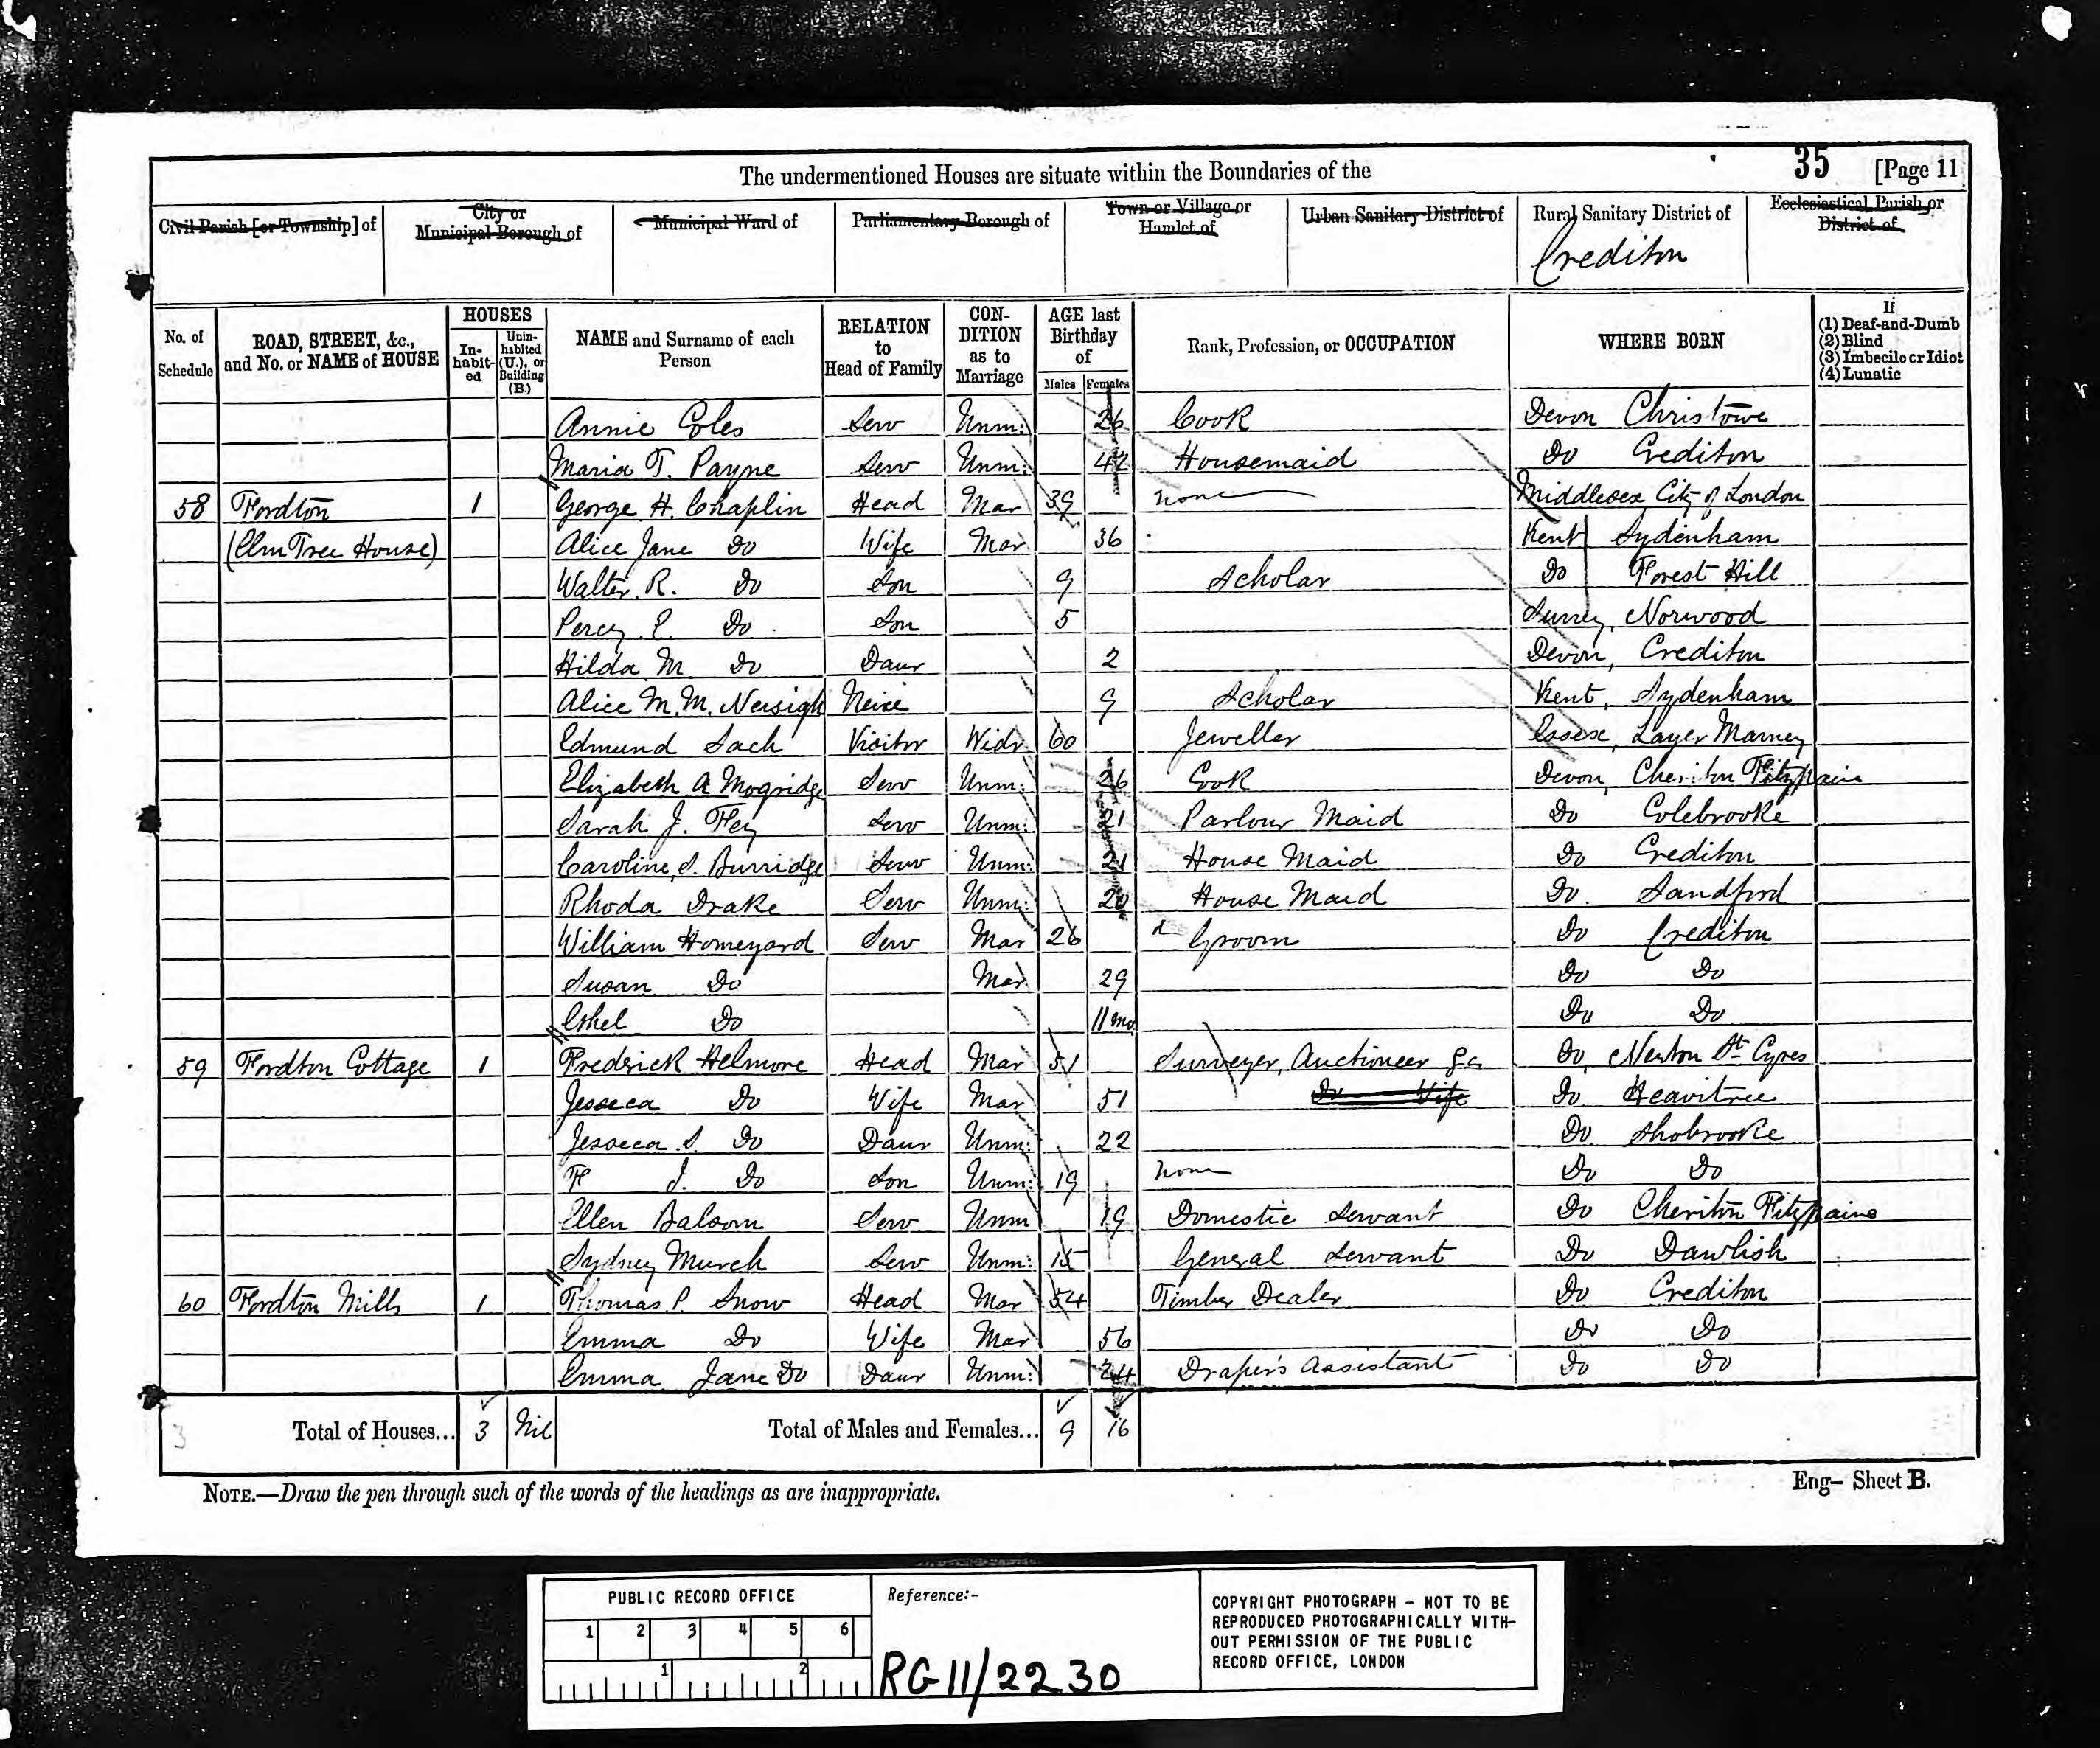 The undermentioned Houses are situate within the Boundaries of the
35 [Page 11
Civil Parish [or Township] of
City or Municipal Borough of
Municipal Ward of
Parliamentary Borough of
Town or Village or Hamlet of
Urban Sanitary District of
Rural Sanitary District of
Crediton
Ecclesiastical Parish or District of
No. of Schedule
ROAD, STREET, &c., and No. or NAME of HOUSE
HOUSES
In-habit-ed
Unin-habited (U.), or Building (B.)
NAME and Surname of each Person
RELATION to Head of Family
CON-DITION as to Marriage
AGE last Birthday of
Males Females
Rank, Profession, or OCCUPATION
WHERE BORN
If
(1) Deaf-and-Dumb
(2) Blind
(3) Imbecile or Idiot
(4) Lunatic
Annie Coles Serv Unm: 26 Cook Devon Christowe
Maria T. Payne Serv Unm: 42 Housemaid Do Crediton
58 Fordton 1 George H. Chaplin Head Mar 39 none Middlesex City of London
(Elm Tree House) Alice Jane Do Wife Mar 36 Kent Sydenham
Walter R. Do Son 9 Scholar Do Forest Hill
Percy E. Do Son 5 Surrey, Norwood
Hilda M Do Daur 2 Devon, Crediton
Alice M. M. Neisigh Neice 9 Scholar Kent, Sydenham
Edmund Sach Visitor Widr 60 Jeweller Essex, Layer Marney
Elizabeth A Mogridge Serv Unm: 26 Cook Devon, Cheriton Fitzpaine
Sarah J. Fey Serv Unm: 21 Parlour Maid Do Colebrooke
Caroline S. Burridge Serv Unm: 21 House Maid Do Crediton
Rhoda Drake Serv Unm: 20 House Maid Do. Sandford
William Homeyard Serv Mar 26 Groom Do Crediton
Susan Do Mar 29 Do Do
Ethel Do 11 mo Do Do
59 Fordton Cottage 1 Fredrick Helmore Head Mar 51 Surveyer, Auctioneer &c. Do, Newton St Cyres
Jesseca Do Wife Mar 51 Do Wife Do Heavitree
Jesseca S. Do Daur Unm: 22 Do Shobrooke
F J. Do Son Unm: 19 none Do Do
Ellen Balsom Serv Unm 19 Domestic Servant Do Cheriton Fitzpaine
Sydney Murch Serv Unm: 15 General Servant Do Dawlish
60 Fordton Mills 1 Thomas P. Snow Head Mar 54 Timber Dealer Do Crediton
Emma Do Wife Mar 56 Do Do
Emma Jane Do Daur Unm: 24 Draper's Assistant Do Do
3 Total of Houses... 3 Nil Total of Males and Females... 9 16
NOTE.—Draw the pen through such of the words of the headings as are inappropriate.
Eng— Sheet B.
PUBLIC RECORD OFFICE
1 2 3 4 5 6
1 2
Reference:-
RG 11/2230
COPYRIGHT PHOTOGRAPH - NOT TO BE
REPRODUCED PHOTOGRAPHICALLY WITH-
OUT PERMISSION OF THE PUBLIC
RECORD OFFICE, LONDON